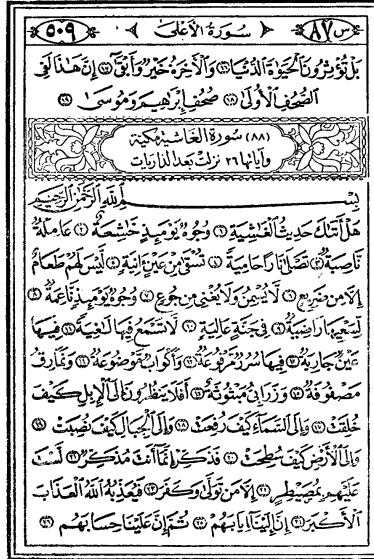 س ٨٧ سورة الأعلى ٥٠٩
بَلْ تُؤْثِرُونَ ٱلْحَيَوٰةَ ٱلدُّنْيَا ١٦ وَٱلْأَخِرَةُ خَيْرٌ وَأَبْقَىٰٓ ١٧ إِنَّ هَٰذَا لَفِى
ٱلصُّحُفِ ٱلْأُولَىٰ ١٨ صُحُفِ إِبْرَٰهِيمَ وَمُوسَىٰ ١٩
(٨٨) سورة الغاشية مكية
وآياتها ٢٦ نزلت بعد الذاريات
بِسْمِ ٱللَّهِ ٱلرَّحْمَٰنِ ٱلرَّحِيمِ
هَلْ أَتَىٰكَ حَدِيثُ ٱلْغَٰشِيَةِ ١ وُجُوهٌ يَوْمَئِذٍ خَٰشِعَةٌ ٢ عَامِلَةٌ
نَّاصِبَةٌ ٣ تَصْلَىٰ نَارًا حَامِيَةً ٤ تُسْقَىٰ مِنْ عَيْنٍ ءَانِيَةٍ ٥ لَّيْسَ لَهُمْ طَعَامٌ
إِلَّا مِن ضَرِيعٍ ٦ لَّا يُسْمِنُ وَلَا يُغْنِى مِن جُوعٍ ٧ وُجُوهٌ يَوْمَئِذٍ نَّاعِمَةٌ ٨
لِّسَعْيِهَا رَاضِيَةٌ ٩ فِى جَنَّةٍ عَالِيَةٍ ١٠ لَّا تَسْمَعُ فِيهَا لَٰغِيَةً ١١ فِيهَا
عَيْنٌ جَارِيَةٌ ١٢ فِيهَا سُرُرٌ مَّرْفُوعَةٌ ١٣ وَأَكْوَابٌ مَّوْضُوعَةٌ ١٤ وَنَمَارِقُ
مَصْفُوفَةٌ ١٥ وَزَرَابِىُّ مَبْثُوثَةٌ ١٦ أَفَلَا يَنظُرُونَ إِلَى ٱلْإِبِلِ كَيْفَ
خُلِقَتْ ١٧ وَإِلَى ٱلسَّمَآءِ كَيْفَ رُفِعَتْ ١٨ وَإِلَى ٱلْجِبَالِ كَيْفَ نُصِبَتْ ١٩
وَإِلَى ٱلْأَرْضِ كَيْفَ سُطِحَتْ ٢٠ فَذَكِّرْ إِنَّمَآ أَنتَ مُذَكِّرٌ ٢١ لَّسْتَ
عَلَيْهِم بِمُصَيْطِرٍ ٢٢ إِلَّا مَن تَوَلَّىٰ وَكَفَرَ ٢٣ فَيُعَذِّبُهُ ٱللَّهُ ٱلْعَذَابَ
ٱلْأَكْبَرَ ٢٤ إِنَّ إِلَيْنَآ إِيَابَهُمْ ٢٥ ثُمَّ إِنَّ عَلَيْنَا حِسَابَهُم ٢٦